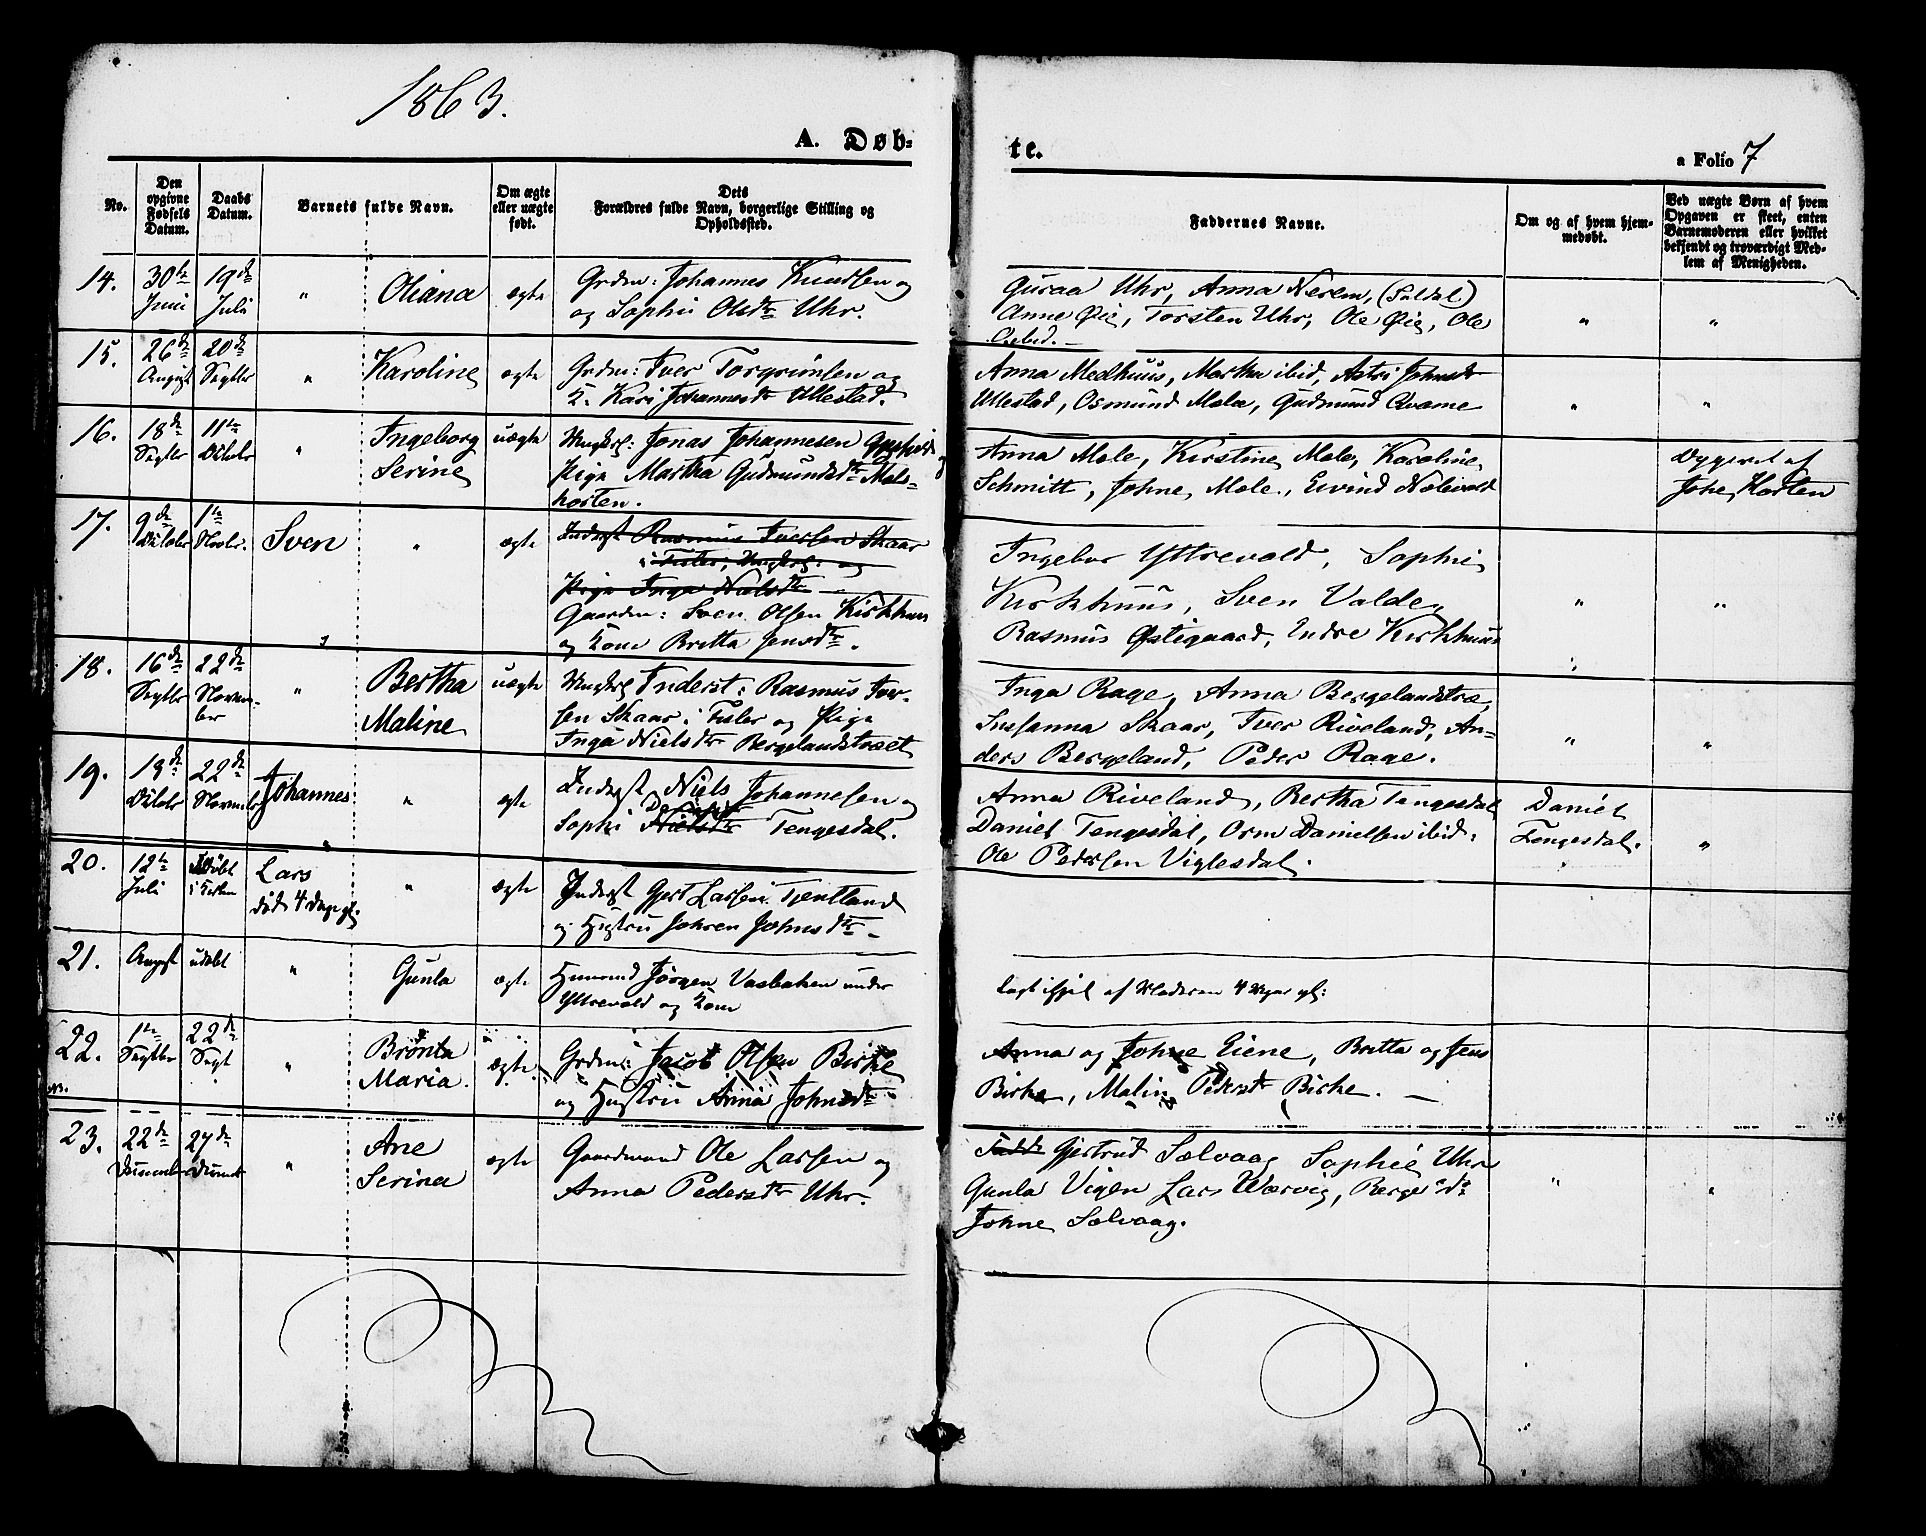 1863.
A. Døb-
te.
a Folio 7
No.
Den
opgivne
Fødsels
Datum.
Daabs
Datum.
Barnets fulde Navn.
Om ægte
eller uægte
født.
Dets
Forældres fulde Navn, borgerlige Stilling og
Opholdssted.
Faddernes Navne.
Om og af hvem hjem-
medøbt.
Ved uægte Børn af hvem
Opgaven er skeet, enten
Barnemoderen eller hvilket
bekjendt og troværdigt Med-
lem af Menigheden.
14.
30te
Juni
19de
Juli
"
Oliana
ægte
Grdm: Johannes Knudsen og
og Sophi Olsdtr Uhr.
Guraa Uhr, Anna Nerem, (Suldal)
Anne Øie, Torsten Uhr, Ole Øie, Ole
ibid.
"
"
15.
26de
August
20de
Septbr
"
Karoline
ægte
Grdm: Iver Torgrimsen og
K. Kari Johannesdtr Ullestad.
Anna Medhuus, Martha ibid, Astri Johnsdtr
Ullestad, Osmund Mæle, Gudmund Qvame
"
"
16.
18de
Septbr
11te
Octobr
"
Ingeborg
Serine
uægte
Ungkrl: Jonas Johannesen
Pige Martha Gudmundsdtr Mæls-
horten.
Anna Mæle, Kirstine Mæle, Karoline
Schmitt, Johne Mæle, Eivind
Opgivet af
Johe Horten
17.
9de
Octobr
1te
Novbr.
Sven
"
ægte
Inderst Rasmus Iversen Skaar
i Fister, Ungkrl: og
Pige Inga Nielsdtr
Gaardm: Sven Olsen Kirkhuus
og Kone Britta Jensdtr.
Ingebor Yttrevold, Sophi
Kirkhuus, Sven Valde,
Rasmus Østigaard, Indre Kirkhuus
"
"
18.
16de
Septbr
22de
Novem-
ber
"
Bertha
Maline
uægte
Ungkrl Inderst: Rasmus Iver-
sen Skaar i Fister og Pige
Inga Nielsdtr Bergelandstræet
Inga Rage, Anna Bergelandstræ,
Susanna Skaar, Iver Riveland, An-
ders Bergeland, Peder Rage.
"
"
19.
18de
Octobr
22de
Novembr
Johannes
"
ægte
Inderst Niels Johannesen og
Sophi Nielsdtr Tengesdal.
Anna Riveland, Bertha Tengesdal
Daniel Tengesdal, Orm Danielsen ibid,
Ole Pedersen Viglesdal.
Daniel
Tengesdal.
"
20.
12te
Juli
Døbt
i Kirken
Lars
død 4 Dage gl.
"
ægte
Inderst Gjert Larsen Tjentland
og Hustru Johren Johnsdtr
21.
August
udøbt
"
Gunla
ægte
Huusmd Jørgen Vasbaken under
Yttrevold og Kone
af Moderen 4 Uger gl:
22.
1te
Septbr
22de
Sept
"
Brønta
Maria.
ægte.
Grdm: Jacob Olsen Birke
og Hustru Anna Johnsdtr
Anna og Johne Eiene, Britta og Jens
Birke, Malin Pedersdtr Birke.
23.
22de
Decembr
27de
Decembr
"
Ane
Serina
ægte
Gaardmand Ole Larsen og
Anna Pedersdtr Uhr.
Gjertrud Sælvaag Sophie Uhr
Gunla Vigen Lars Wærvig, Berge do
Johne Sælvaag.
"
"